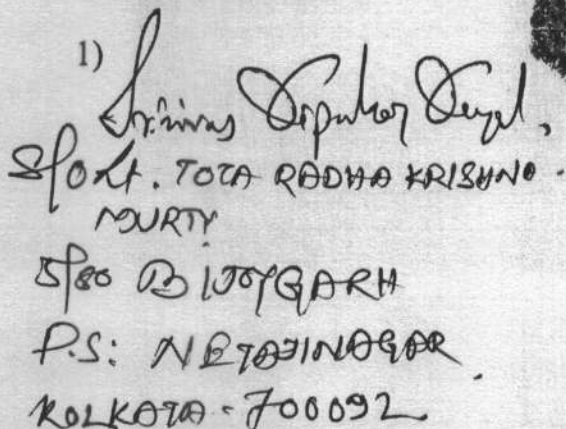 1)
Srinivas
S/O Lt. TOTA RADHA KRISHNO
MURTY
5/80 BIJOYGARH
P.S: NETAJINAGAR
KOLKATA - 700092